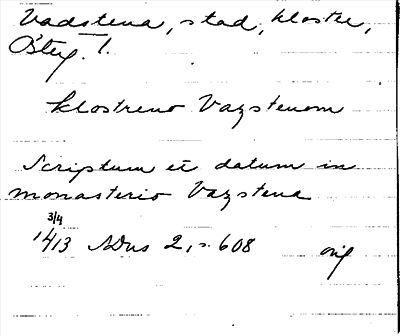 Vadstena, stad, kloster,
Östg. l.
klostreno Vazstenom
Scriptum et datum in
monasterio Vazstena
3/4
1413 SDns 2, s. 608 orig